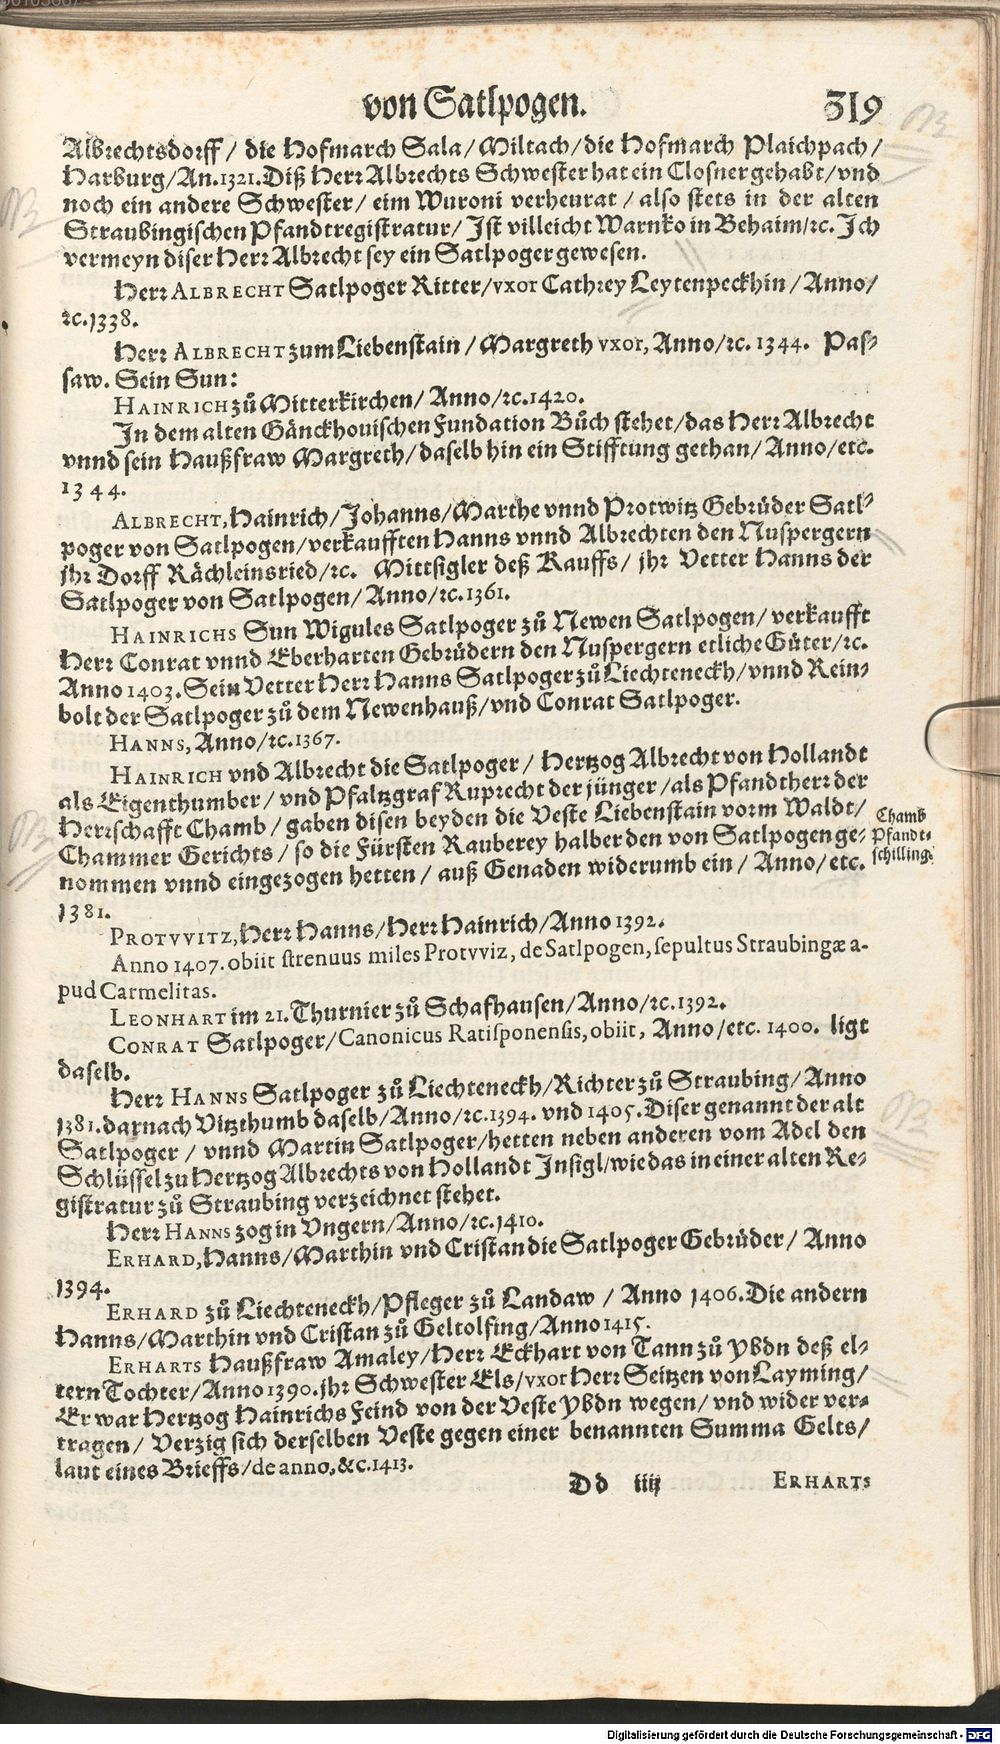 von Satlpogen. 319
Albrechtsdorff / die Hofmarch Sala / Miltach / die Hofmarch Plaichpach /
Harburg / An. 1321. Diß Herr Albrechts Schwester hat ein Closner gehabt / vnd
noch ein andere Schwester / eim Wuroni verheurat / also stets in der alten
Straubingischen Pfandtregistratur / Ist villeicht Warnko in Behaim / ꝛc. Ich
vermeyn diser Herr Albrecht sey ein Satlpoger gewesen.
Herr ALBRECHT Satlpoger Ritter / vxor Cathrey Leytenpeckhin / Anno /
ꝛc. 1338.
Herr ALBRECHT zum Liebenstain / Margreth vxor, Anno / ꝛc. 1344. Pas-
saw. Sein Sun:
HAINRICH zů Mitterkirchen / Anno / ꝛc. 1420.
In dem alten Gänckhouischen Fundation Bůch stehet / das Herr Albrecht
vnnd sein Haußfraw Margreth / daselb hin ein Stifftung gethan / Anno / etc.
1344.
ALBRECHT, Hainrich / Johanns / Marthe vnnd Protwitz Gebrüder Satl-
poger von Satlpogen / verkaufften Hanns vnnd Albrechten den Nuspergern
jhr Dorff Rächleinsried / ꝛc. Mittsigler deß Kauffs / jhr Vetter Hanns der
Satlpoger von Satlpogen / Anno / ꝛc. 1361.
HAINRICHS Sun Wigules Satlpoger zů Newen Satlpogen / verkaufft
Herr Conrat vnnd Eberharten Gebrüdern den Nuspergern etliche Güter / ꝛc.
Anno 1403. Sein Vetter Herr Hanns Satlpoger zů Liechteneckh / vnnd Rein-
bolt der Satlpoger zů dem Newenhauß / vnd Conrat Satlpoger.
HANNS, Anno / ꝛc. 1367.
HAINRICH vnd Albrecht die Satlpoger / Hertzog Albrecht von Hollandt
als Eigenthumber / vnd Pfaltzgraf Ruprecht der jünger / als Pfandtherr der
Herrschafft Chamb / gaben disen beyden die Veste Liebenstain vorm Waldt /
Chammer Gerichts / so die Fürsten Rauberey halber den von Satlpogen ge-
nommen vnnd eingezogen hetten / auß Genaden widerumb ein / Anno / etc.
1381.
Chamb
Pfandt-
schilling.
PROTVVITZ, Herr Hanns / Herr Hainrich / Anno 1392.
Anno 1407. obiit strenuus miles Protvviz, de Satlpogen, sepultus Straubingæ a-
pud Carmelitas.
LEONHART im 21. Thurnier zů Schafhausen / Anno / ꝛc. 1392.
CONRAT Satlpoger / Canonicus Ratisponensis, obiit, Anno / etc. 1400. ligt
daselb.
Herr HANNS Satlpoger zů Liechteneckh / Richter zů Straubing / Anno
1381. darnach Vitzthumb daselb / Anno / ꝛc. 1394. vnd 1405. Diser genannt der alt
Satlpoger / vnnd Martin Satlpoger / hetten neben anderen vom Adel den
Schlüssel zu Hertzog Albrechts von Hollandt Insigl / wie das in einer alten Re-
gistratur zů Straubing verzeichnet stehet.
Herr HANNS zog in Vngern / Anno / ꝛc. 1410.
ERHARD, Hanns / Marthin vnd Cristan die Satlpoger Gebrüder / Anno
1394.
ERHARD zů Liechteneckh / Pfleger zů Landaw / Anno 1406. Die andern
Hanns / Marthin vnd Cristan zů Geltolfing / Anno 1415.
ERHARTS Haußfraw Amaley / Herr Eckhart von Tann zů Ybdn deß el-
tern Tochter / Anno 1390. jhr Schwester Els / vxor Herr Seitzen von Layming /
Er war Hertzog Hainrichs Feind von der Veste Ybdn wegen / vnd wider ver-
tragen / Verzig sich derselben Veste gegen einer benannten Summa Gelts /
laut eines Brieffs / de anno, &c. 1413.
Dd iiij ERHARTS
Digitalisierung gefördert durch die Deutsche Forschungsgemeinschaft - DFG